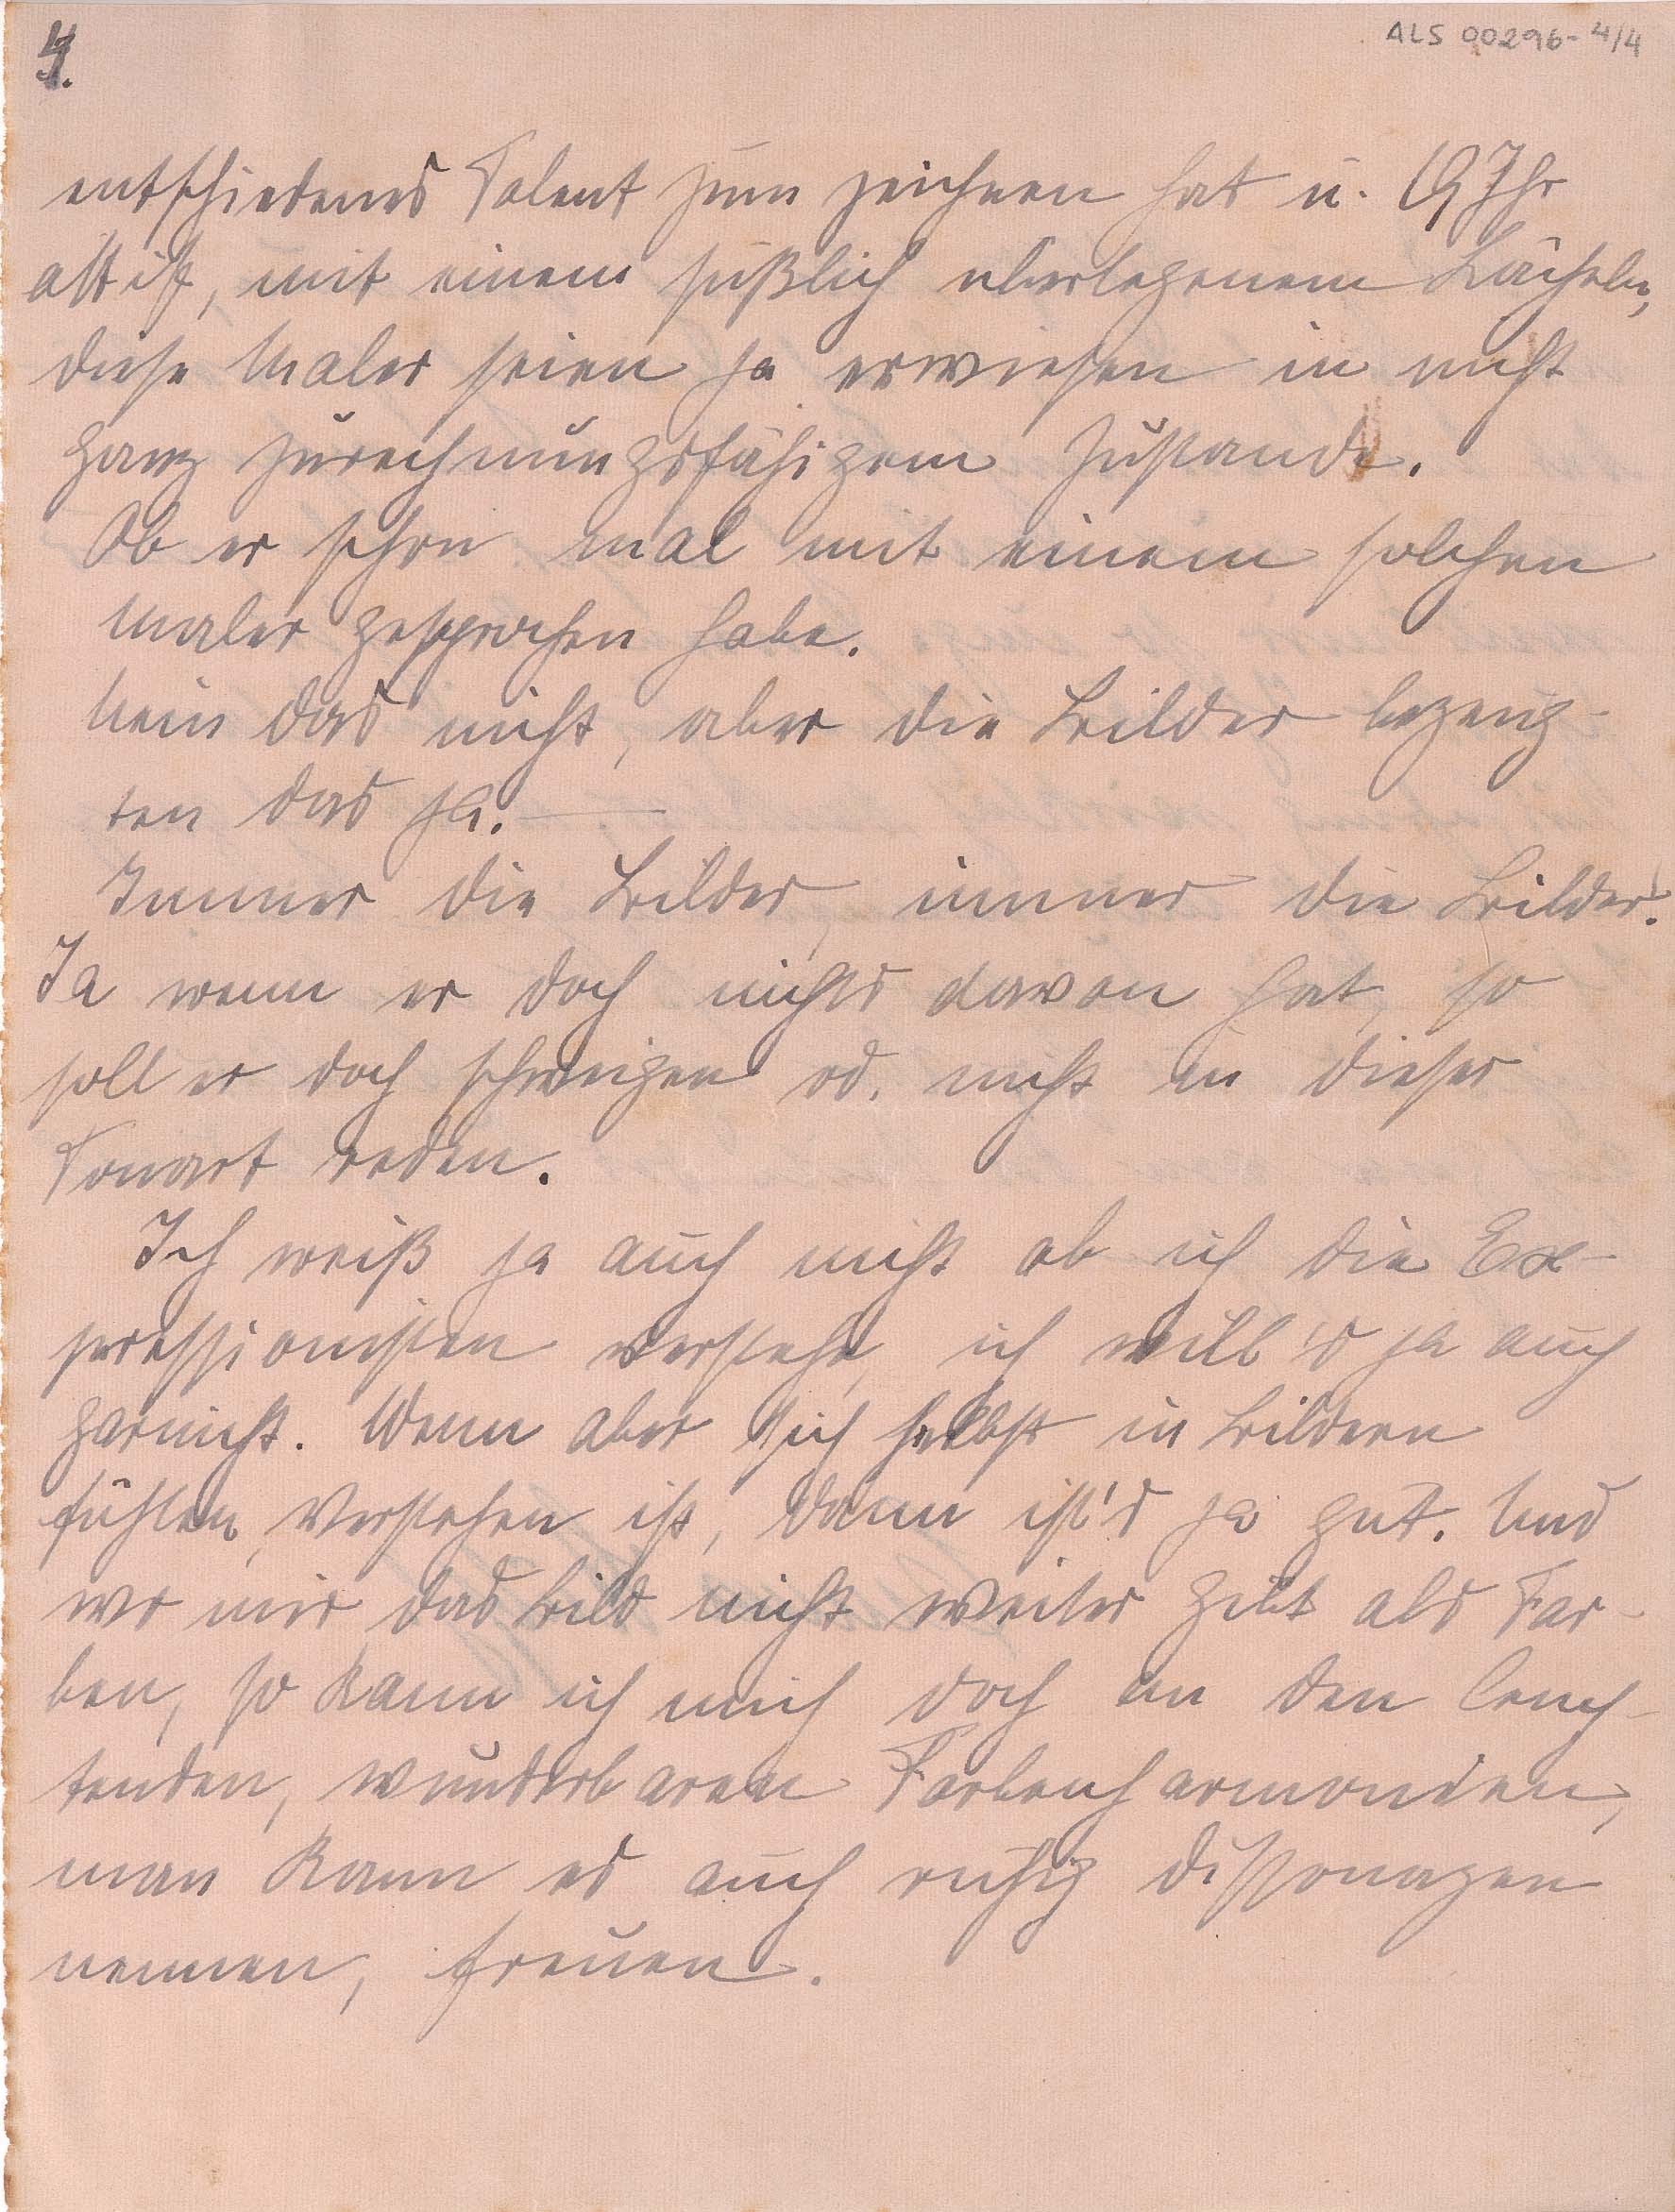 4.
ALS 00296-4/4
entschiedenes Talent zum zeichnen hat u. 19 Jhr
alt ist, mit einem süßlich überlegenem Lächeln,
diese Maler seien ja erwiesen in nicht
ganz zurechnungsfähigem Zustande.
Ob er schon mal mit einem solchen
Maler gesprochen habe.
Nein das nicht, aber die Bilder bezeug-
ten das ja. —
Immer die Bilder, immer die Bilder!
Ja wenn er doch nichts davon hat, so
soll er doch schweigen od. nicht in dieser
Tonart reden.
Ich weiß ja auch nicht ob ich die Ex-
pressionisten verstehe, ich will's ja auch
garnicht. Wenn aber sich selbst in Bildern
fühlen, Verstehen ist, dann ist's ja gut. Und
wo mir das Bild nicht weiter gibt als Far-
ben, so kann ich mich doch an den leuch-
tenden, wunderbaren Farbenharmonien,
man kann es auch ruhig Dissonazen
nennen, freuen.